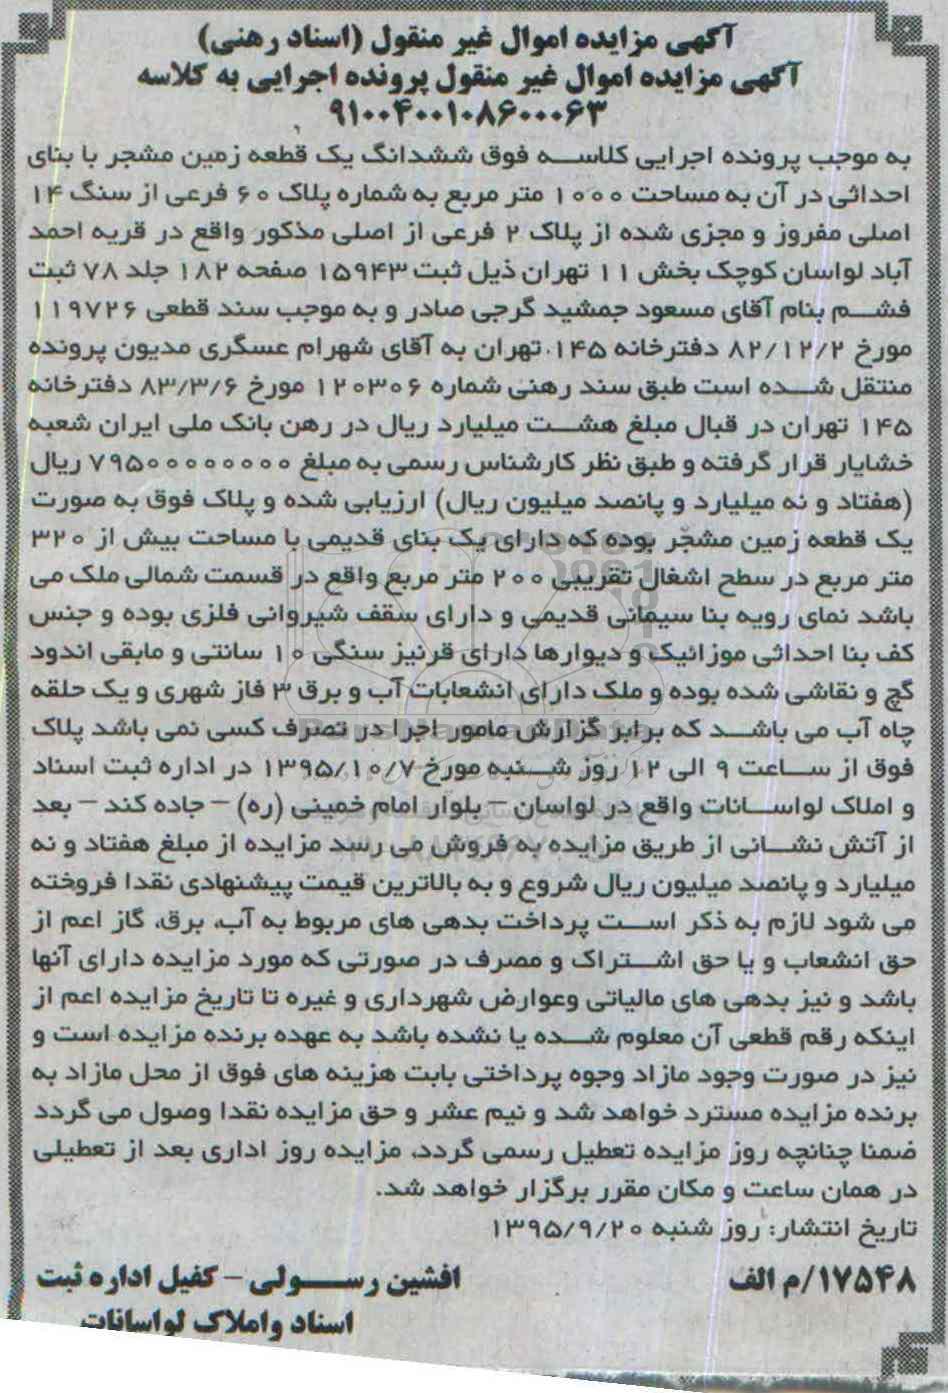 آگهی مزایده اموال غیر منقول (اسناد رهنی)
آگهی مزایده اموال غیر منقول پرونده اجرایی به کلاسه
۹۱۰۰۴۰۰۱۰۸۶۰۰۰۶۳
به موجب پرونده اجرایی کلاسه فوق ششدانگ یک قطعه زمین مشجر با بنای
احداثی در آن به مساحت ۱۰۰۰ متر مربع به شماره پلاک ۶۰ فرعی از سنگ ۱۴
اصلی مفروز و مجزی شده از پلاک ۲ فرعی از اصلی مذکور واقع در قریه احمد
آباد لواسان کوچک بخش ۱۱ تهران ذیل ثبت ۱۵۹۴۳ صفحه ۱۸۲ جلد ۷۸ ثبت
فشم بنام آقای مسعود جمشید گرجی صادر و به موجب سند قطعی ۱۱۹۷۲۶
مورخ ۸۲/۱۲/۲ دفترخانه ۱۴۵ تهران به آقای شهرام عسگری مدیون پرونده
منتقل شده است طبق سند رهنی شماره ۱۲۰۳۰۶ مورخ ۸۳/۳/۶ دفترخانه
۱۴۵ تهران در قبال مبلغ هشت میلیارد ریال در رهن بانک ملی ایران شعبه
خشایار قرار گرفته و طبق نظر کارشناس رسمی به مبلغ ۷۹۵۰۰۰۰۰۰۰۰ ریال
(هفتاد و نه میلیارد و پانصد میلیون ریال) ارزیابی شده و پلاک فوق به صورت
یک قطعه زمین مشجّر بوده که دارای یک بنای قدیمی با مساحت بیش از ۳۲۰
متر مربع در سطح اشغال تقریبی ۲۰۰ متر مربع واقع در قسمت شمالی ملک می
باشد نمای رویه بنا سیمانی قدیمی و دارای سقف شیروانی فلزی بوده و جنس
کف بنا احداثی موزائیک و دیوارها دارای قرنیز سنگی ۱۰ سانتی و مابقی اندود
گچ و نقاشی شده بوده و ملک دارای انشعابات آب و برق ۳ فاز شهری و یک حلقه
چاه آب می باشد که برابر گزارش مامور اجرا در تصرف کسی نمی باشد پلاک
فوق از ساعت ۹ الی ۱۲ روز شنبه مورخ ۱۳۹۵/۱۰/۷ در اداره ثبت اسناد
و املاک لواسانات واقع در لواسان – بلوار امام خمینی (ره) – جاده کند – بعد
از آتش نشانی از طریق مزایده به فروش می رسد مزایده از مبلغ هفتاد و نه
میلیارد و پانصد میلیون ریال شروع و به بالاترین قیمت پیشنهادی نقدا فروخته
می شود لازم به ذکر است پرداخت بدهی های مربوط به آب، برق، گاز اعم از
حق انشعاب و یا حق اشتراک و مصرف در صورتی که مورد مزایده دارای آنها
باشد و نیز بدهی های مالیاتی وعوارض شهرداری و غیره تا تاریخ مزایده اعم از
اینکه رقم قطعی آن معلوم شده یا نشده باشد به عهده برنده مزایده است و
نیز در صورت وجود مازاد وجوه پرداختی بابت هزینه های فوق از محل مازاد به
برنده مزایده مسترد خواهد شد و نیم عشر و حق مزایده نقدا وصول می گردد
ضمنا چنانچه روز مزایده تعطیل رسمی گردد، مزایده روز اداری بعد از تعطیلی
در همان ساعت و مکان مقرر برگزار خواهد شد.
تاریخ انتشار: روز شنبه ۱۳۹۵/۹/۲۰
۱۷۵۴۸/م الف
افشین رسولی – کفیل اداره ثبت
اسناد واملاک لواسانات